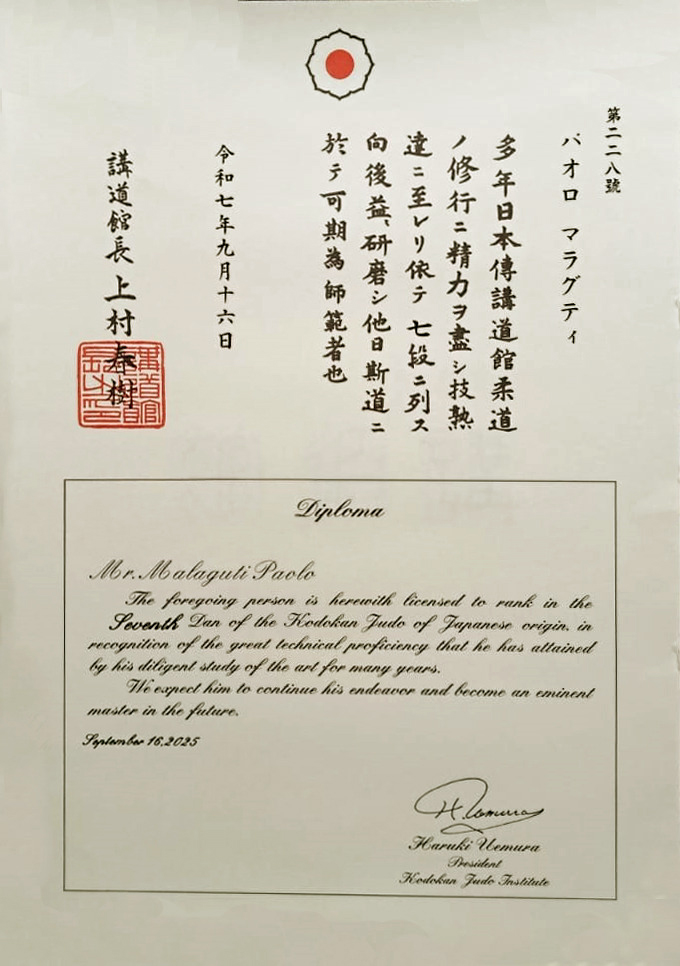 第二二八號
パオロ マラグティ
多年日本傳講道館柔道
ノ修行ニ精力ヲ盡シ技熟
達ニ至レリ依テ七段ニ列ス
向後益〻研磨シ他日斯道ニ
於テ可期為師範者也
令和七年九月十六日
講道館長 上村春樹
Diploma
Mr. Malaguti Paolo
The foregoing person is herewith licensed to rank in the
Seventh Dan of the Kodokan Judo of Japanese origin, in
recognition of the great technical proficiency that he has attained
by his diligent study of the art for many years.
We expect him to continue his endeavor and become an eminent
master in the future.
September 16,2025
H. Uemura
Haruki Uemura
President
Kodokan Judo Institute